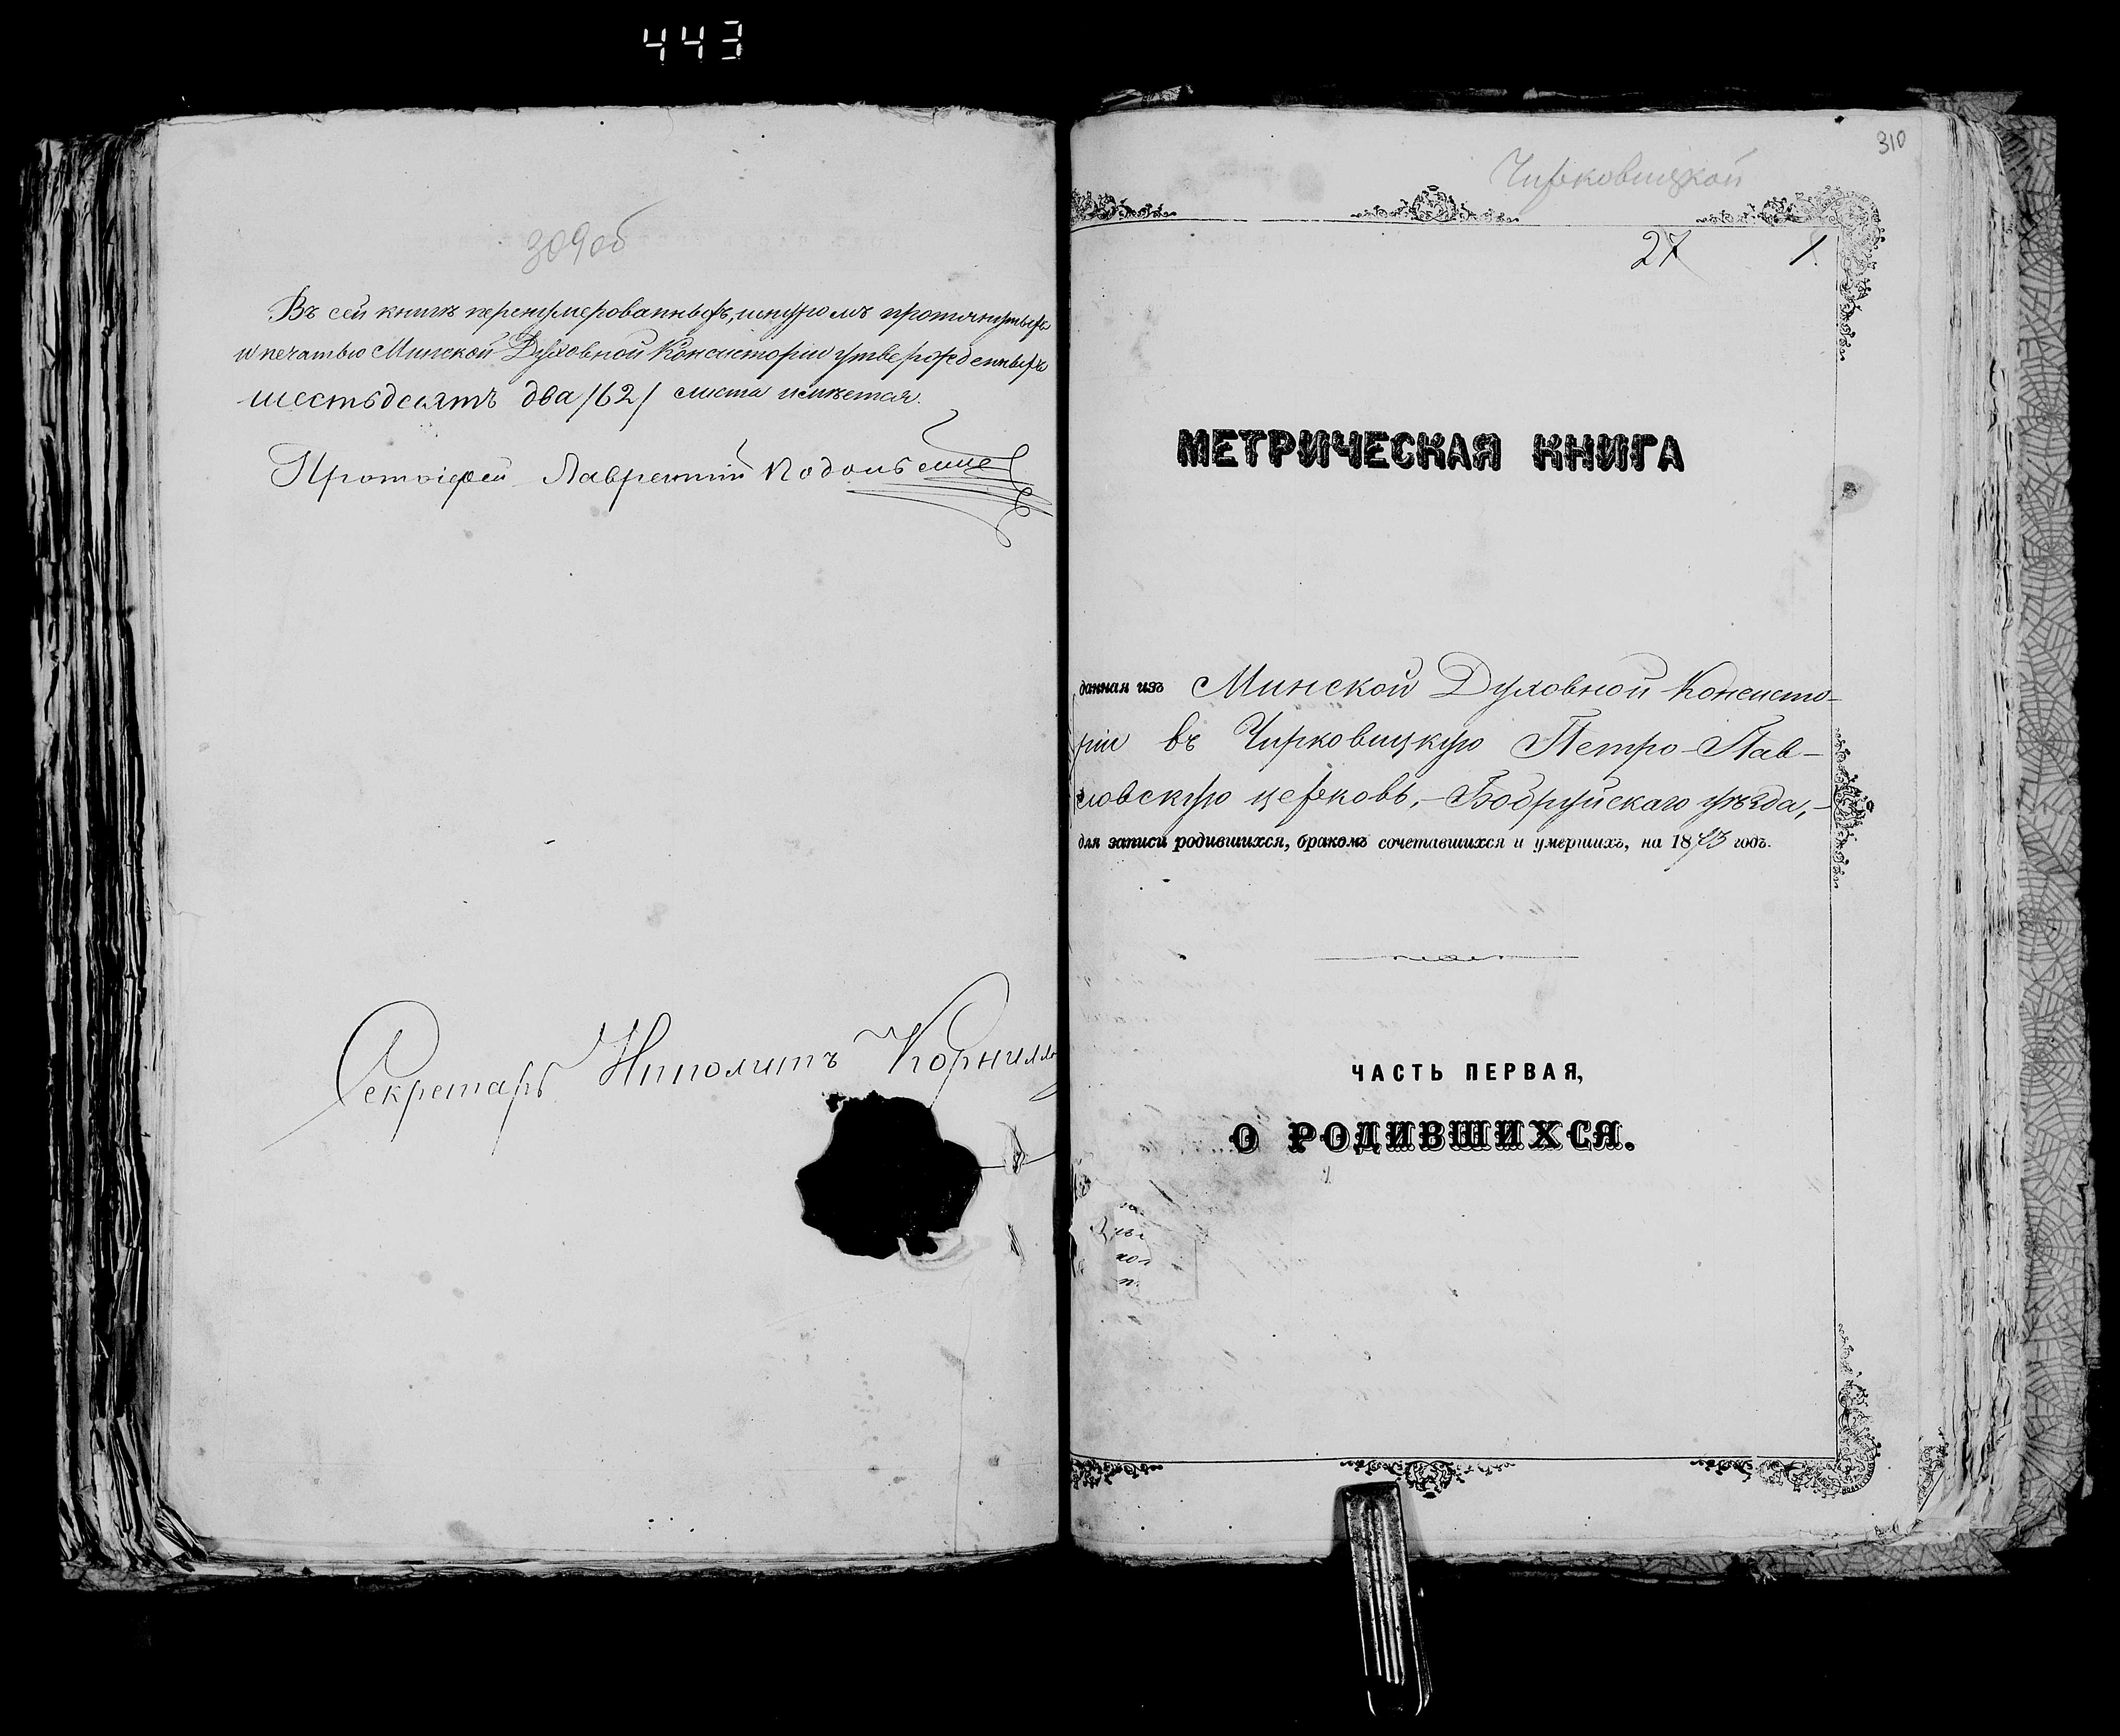 443
309об
Въ сей книгѣ перенумерованныхъ, шнуромъ протянутыхъ
и печатью Минской Духовной Консисторіи утвержденныхъ
шестьдсятъ два /62/ листа имѣется.
Протоіерей Лаврентий
Секретарь Ипполитъ Корнилло
310
Чирковицкой
27 1.
МЕТРИЧЕСКАЯ КНИГА
данная изъ Минской Духовной Консисто-
ріи въ Чирковицкую Петро-Пав-
ловскую церковь, - Бобруйскаго уѣзда, -
для записи родившихся, бракомъ сочетавшихся и умершихъ, на 18 годъ.
ЧАСТЬ ПЕРВАЯ,
О РОДИВШИХСЯ.